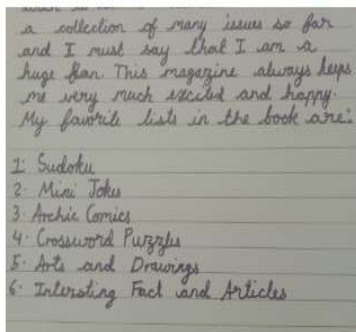 a collection of many issues so far
and I must say that I am a
huge fan. This magazine always keeps
me very much excited and happy.
My favorite lists in the book are:
1· Sudoku
2· Mini Jokes
3· Archie Comics
4· Crossword Puzzles
5· Arts and Drawings
6· Intersting Fact and Articles